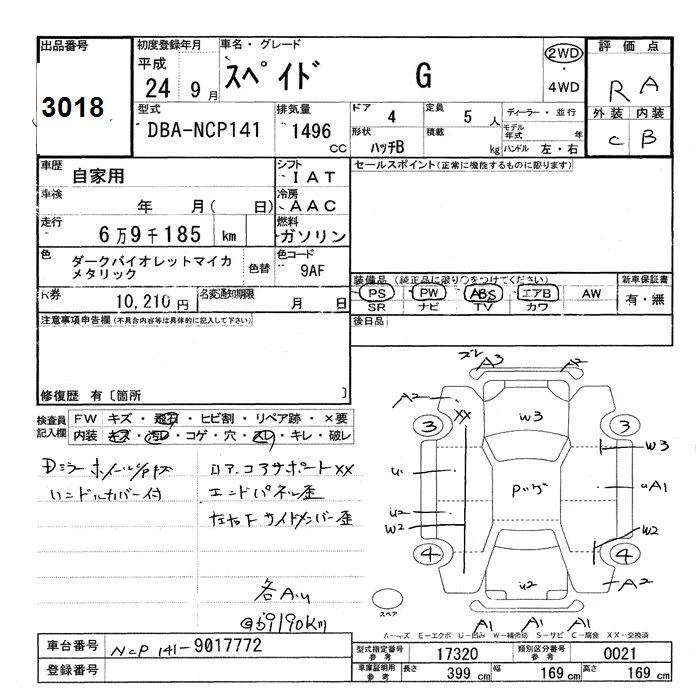 出品番号
3018
初度登録年月
平成
24 9月
車名・グレード
スペイド G
2WD
・
4WD
評価点
R A
外装 内装
C B
型式
DBA-NCP141
排気量
1496 CC
ドア 4
定員 5 人
形状 ハッチB
積載 kg
ディーラー・並行
モデル年式 年
ハンドル 左・右
車歴 自家用
シフト IAT
車検 年 月( 日)
冷房 AAC
走行 6万9千185 km
燃料 ガソリン
色 ダークバイオレットマイカメタリック
色替
色コード 9AF
R券 10,210円
名変通知期限 月 日
セールスポイント(正常に機能するものに限ります)
装備品 (純正品に限り○をつけてください)
PS PW ABS エアB AW
SR ナビ TV カワ
新車保証書
有・無
後日品
注意事項申告欄(不具合内容等は具体的に記入して下さい)
修復歴 有〔箇所 〕
検査員記入欄
FW キズ・飛石・ヒビ割・リペア跡・×要
内装 キズ・汚レ・コゲ・穴・スレ・キレ・破レ
リアコアサポートXX
ハンドルカバー付 エンドパネル歪
左右Fサイドメンバー歪
各AU
@69190km
ズレ A3 A2
A2 XX
W3
3 3
W3
U A1
U2
W2 W2
4 4
U2
A2
A1 A1 A1
スペア
A-キズ E-エクボ U-凹み W-補修跡 S-サビ C-腐食 XX-交換済
車台番号 NCP 141-9017772
登録番号
型式指定番号 参考 17320
類別区分番号 参考 0021
車庫証明用 参考 長さ 399 cm 幅 169 cm 高さ 169 cm